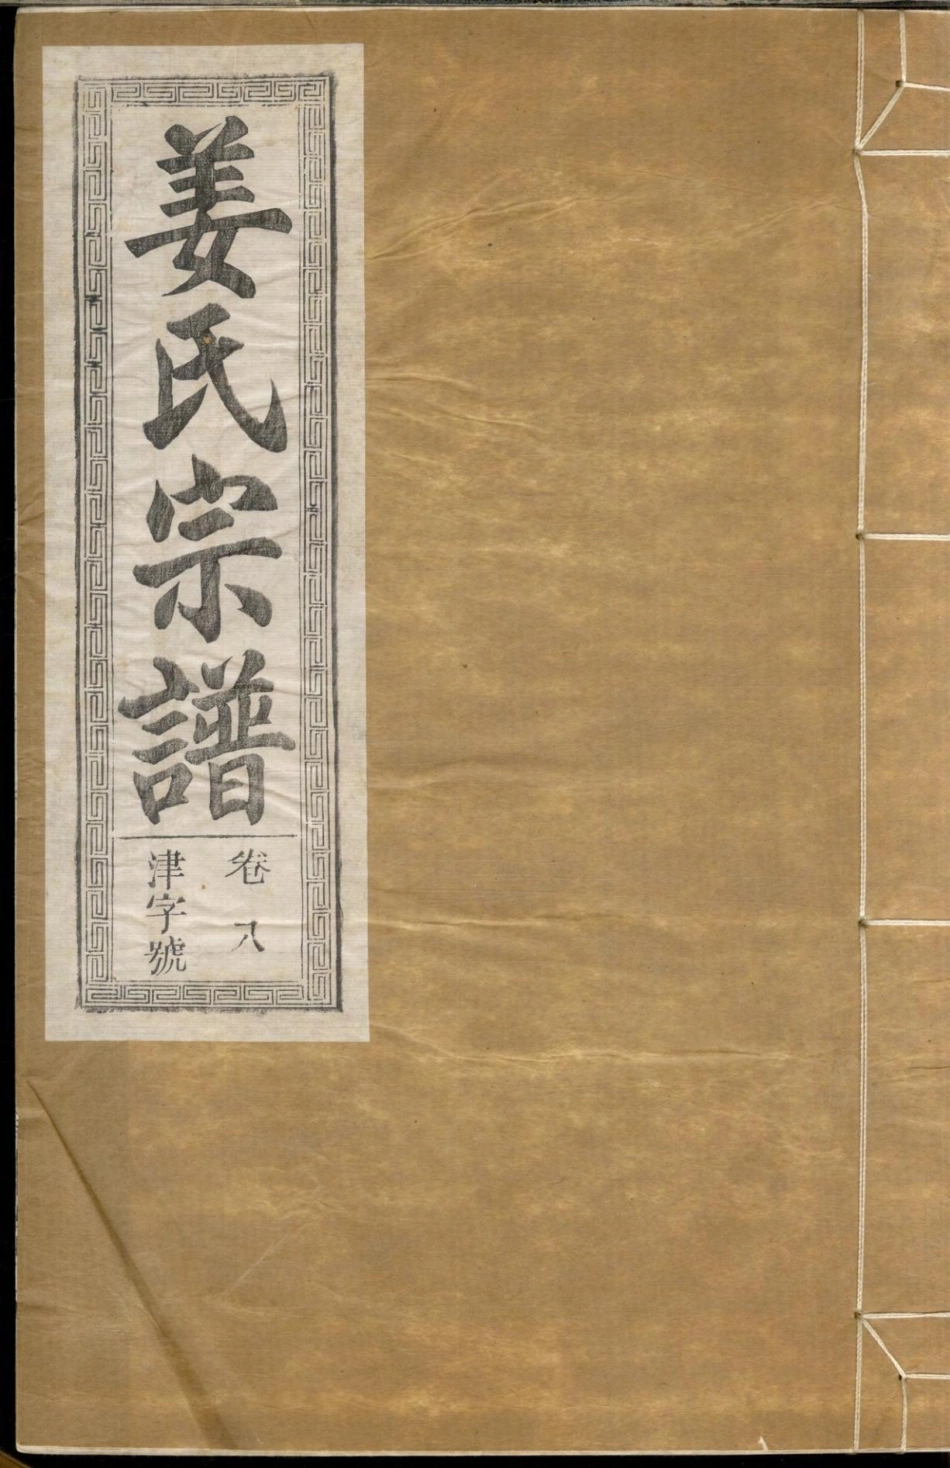 姜氏宗譜
卷八
津字號